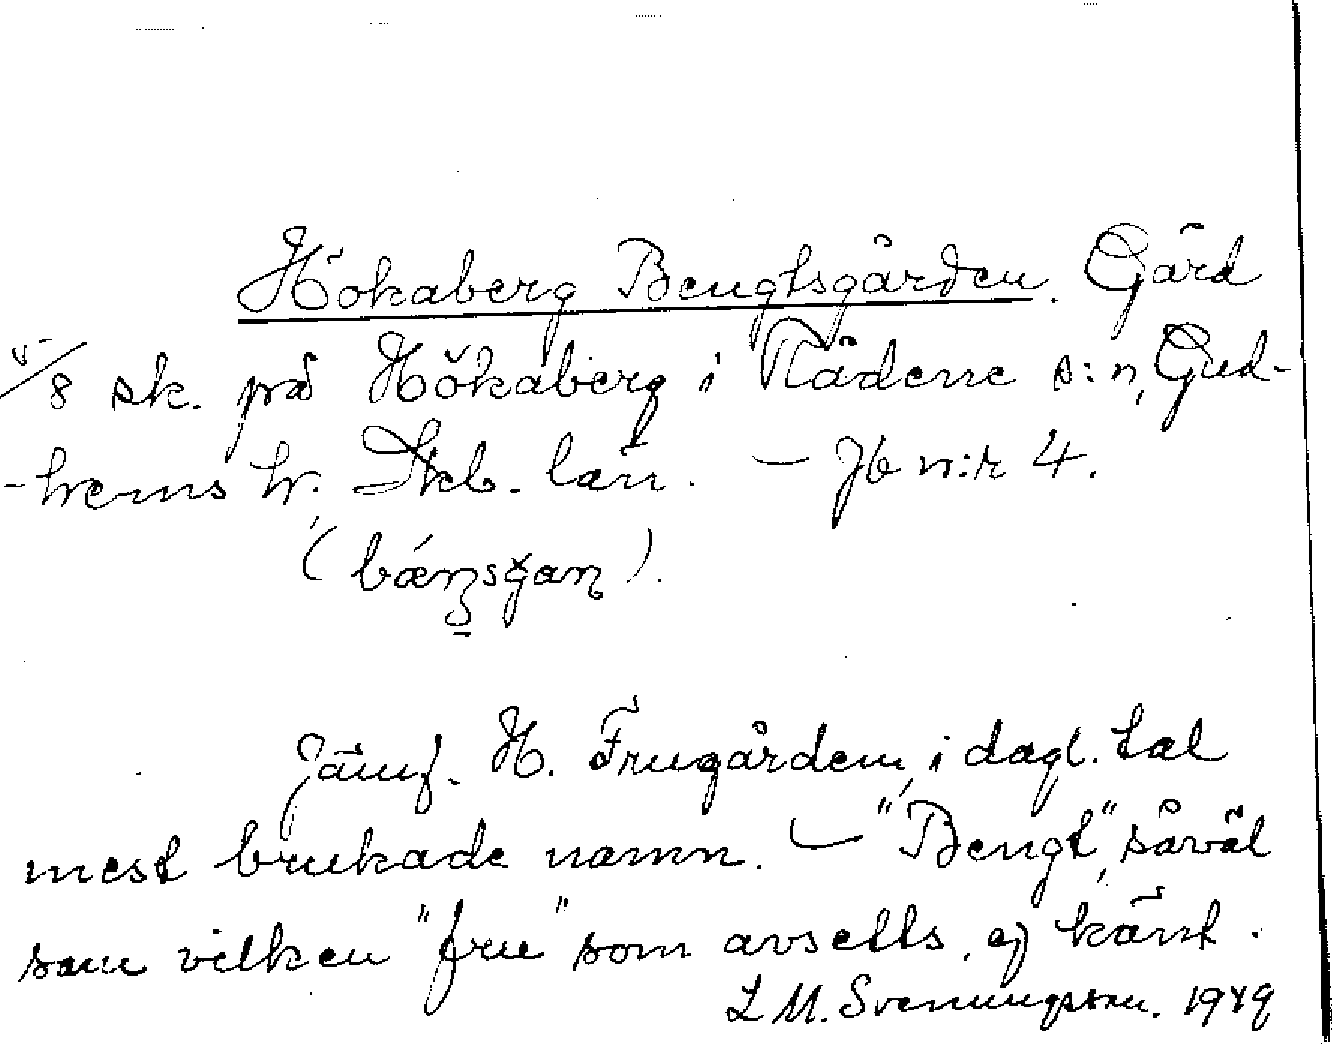 Hökaberg Bengtsgården. Gård
5/8 sk. på Hökaberg i Rådene s:n, Gud-
-hems hr. Skb. län. — Jb n:r 4.
(bǽnsgan).
Jämf. H. Frugården, i dagl. tal
mest brukade namn. — "Bengt", såväl
som vilken "fru" som avsetts, ej känt.
L M. Svenungsson. 1949